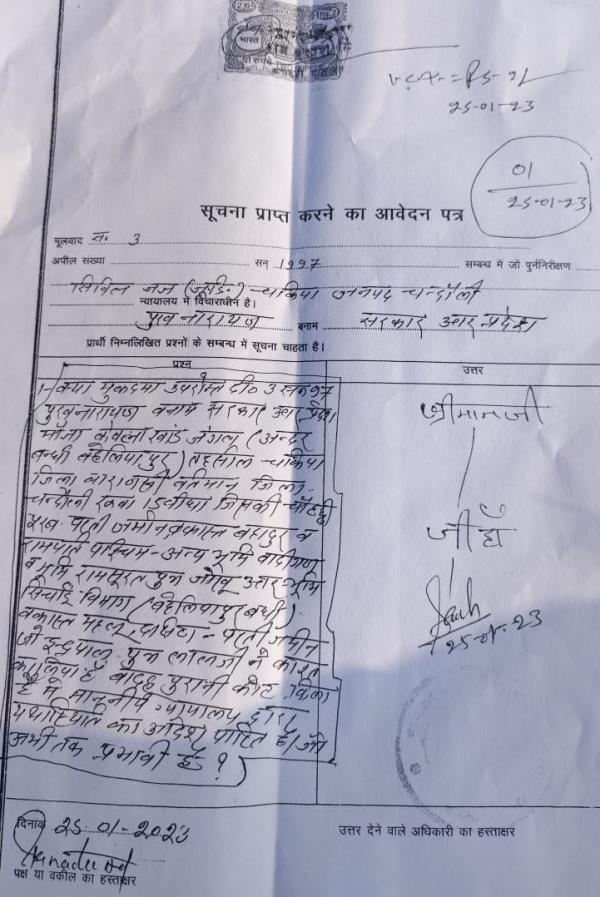 भारत
25-01-23
01
25-01-23
सूचना प्राप्त करने का आवेदन पत्र
मूलवाद स. 3
अपील संख्या सन् 1997 सम्बन्ध में जो पुर्ननिरीक्षण
सिविल जज (जू.डि.) चकिया जनपद चन्दौली
न्यायालय में विचाराधीन है।
बनाम सरकार उत्तर प्रदेश
प्रार्थी निम्नलिखित प्रश्नों के सम्बन्ध में सूचना चाहता है।
प्रश्न उत्तर
1- क्या मुकदमा उपरोक्त दी० 3 सन 97
बनाम सरकार उत्तर प्रदेश
मौजा जंगल (अन्दर
बन्धी बहेलियापुर) तहसील चकिया
जिला वाराणसी वर्तमान जिला
चन्दौली रकबा जिसकी चौहद्दी
पूरब परती जमीन बहादुर व
रामपति पश्चिम- अन्य भूमि वादीगण
व भूमि रामसूरत पुत्र उत्तर भूमि
सिंचाई विभाग (बहेलियापुर बंधी)
दक्षिण - परती जमीन
जो इन्द्रपाल पुत्र लालजी ने
पुरानी कोट
है में माननीय न्यायालय द्वारा
यथास्थिति का आदेश पारित है। जो
अभी तक प्रभावी है ?
श्रीमानजी
जी हाँ
25-01-23
दिनांक 25-01-2023
उत्तर देने वाले अधिकारी का हस्ताक्षर
पक्ष या वकील का हस्ताक्षर